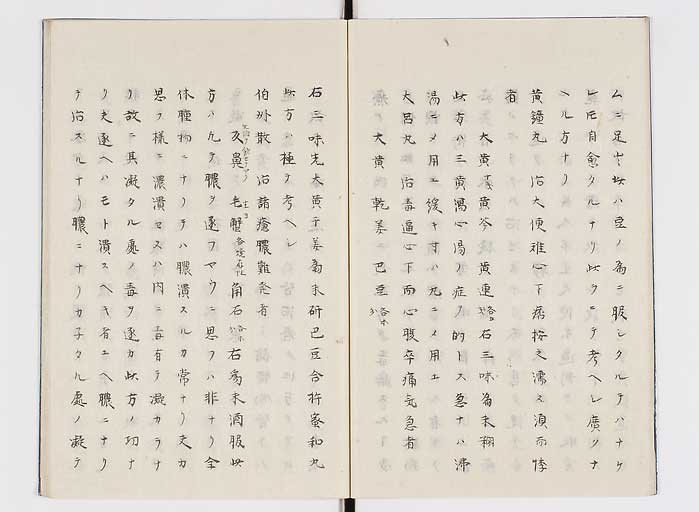 ムニ足ラズ此ハ豆ノ為ニ服シタルニテハナケ
レ𪜈自愈タルナリ此タニテ考ヘシ廣クナ
ヘル方ナリ
黄鐘丸 治大便難心下痞按之濡又須而悸
者
大黄 黄芩 黄連各 右三味為末糊
此方ハ三黄瀉心湯ノ症ヲ的トス急ナハ沸
湯ニメ用エ緩キ寸ハ丸ニメ用エ
大呂丸 治毒逼心下而心腹卒痛気急者
大黄 乾姜 巴豆各
右三味先大黄干姜為末研巴豆合杵蜜和丸
此方ハ極テ考ヘシ
伯州散 治諸瘡膿難発者
反鼻 老蟹各焼存性 角石各 右為末酒服此
方ハ凡テ膿ヲ逐フヤウニ思フハ非ナリ全
体腫物ニナリテハ膿潰スルカ常ナリ夫カ
思フ様ニ濃潰セスハ内ニ毒有テ凝カラナ
リ故ニ其凝タル処ノ毒ヲ逐カ此方ノ功ナ
リ夫逐ヘハモト潰スヘキ者ユヘ膿ニナリ
テ治スルナリ膿ニナリカ子タル処ノ凝テ